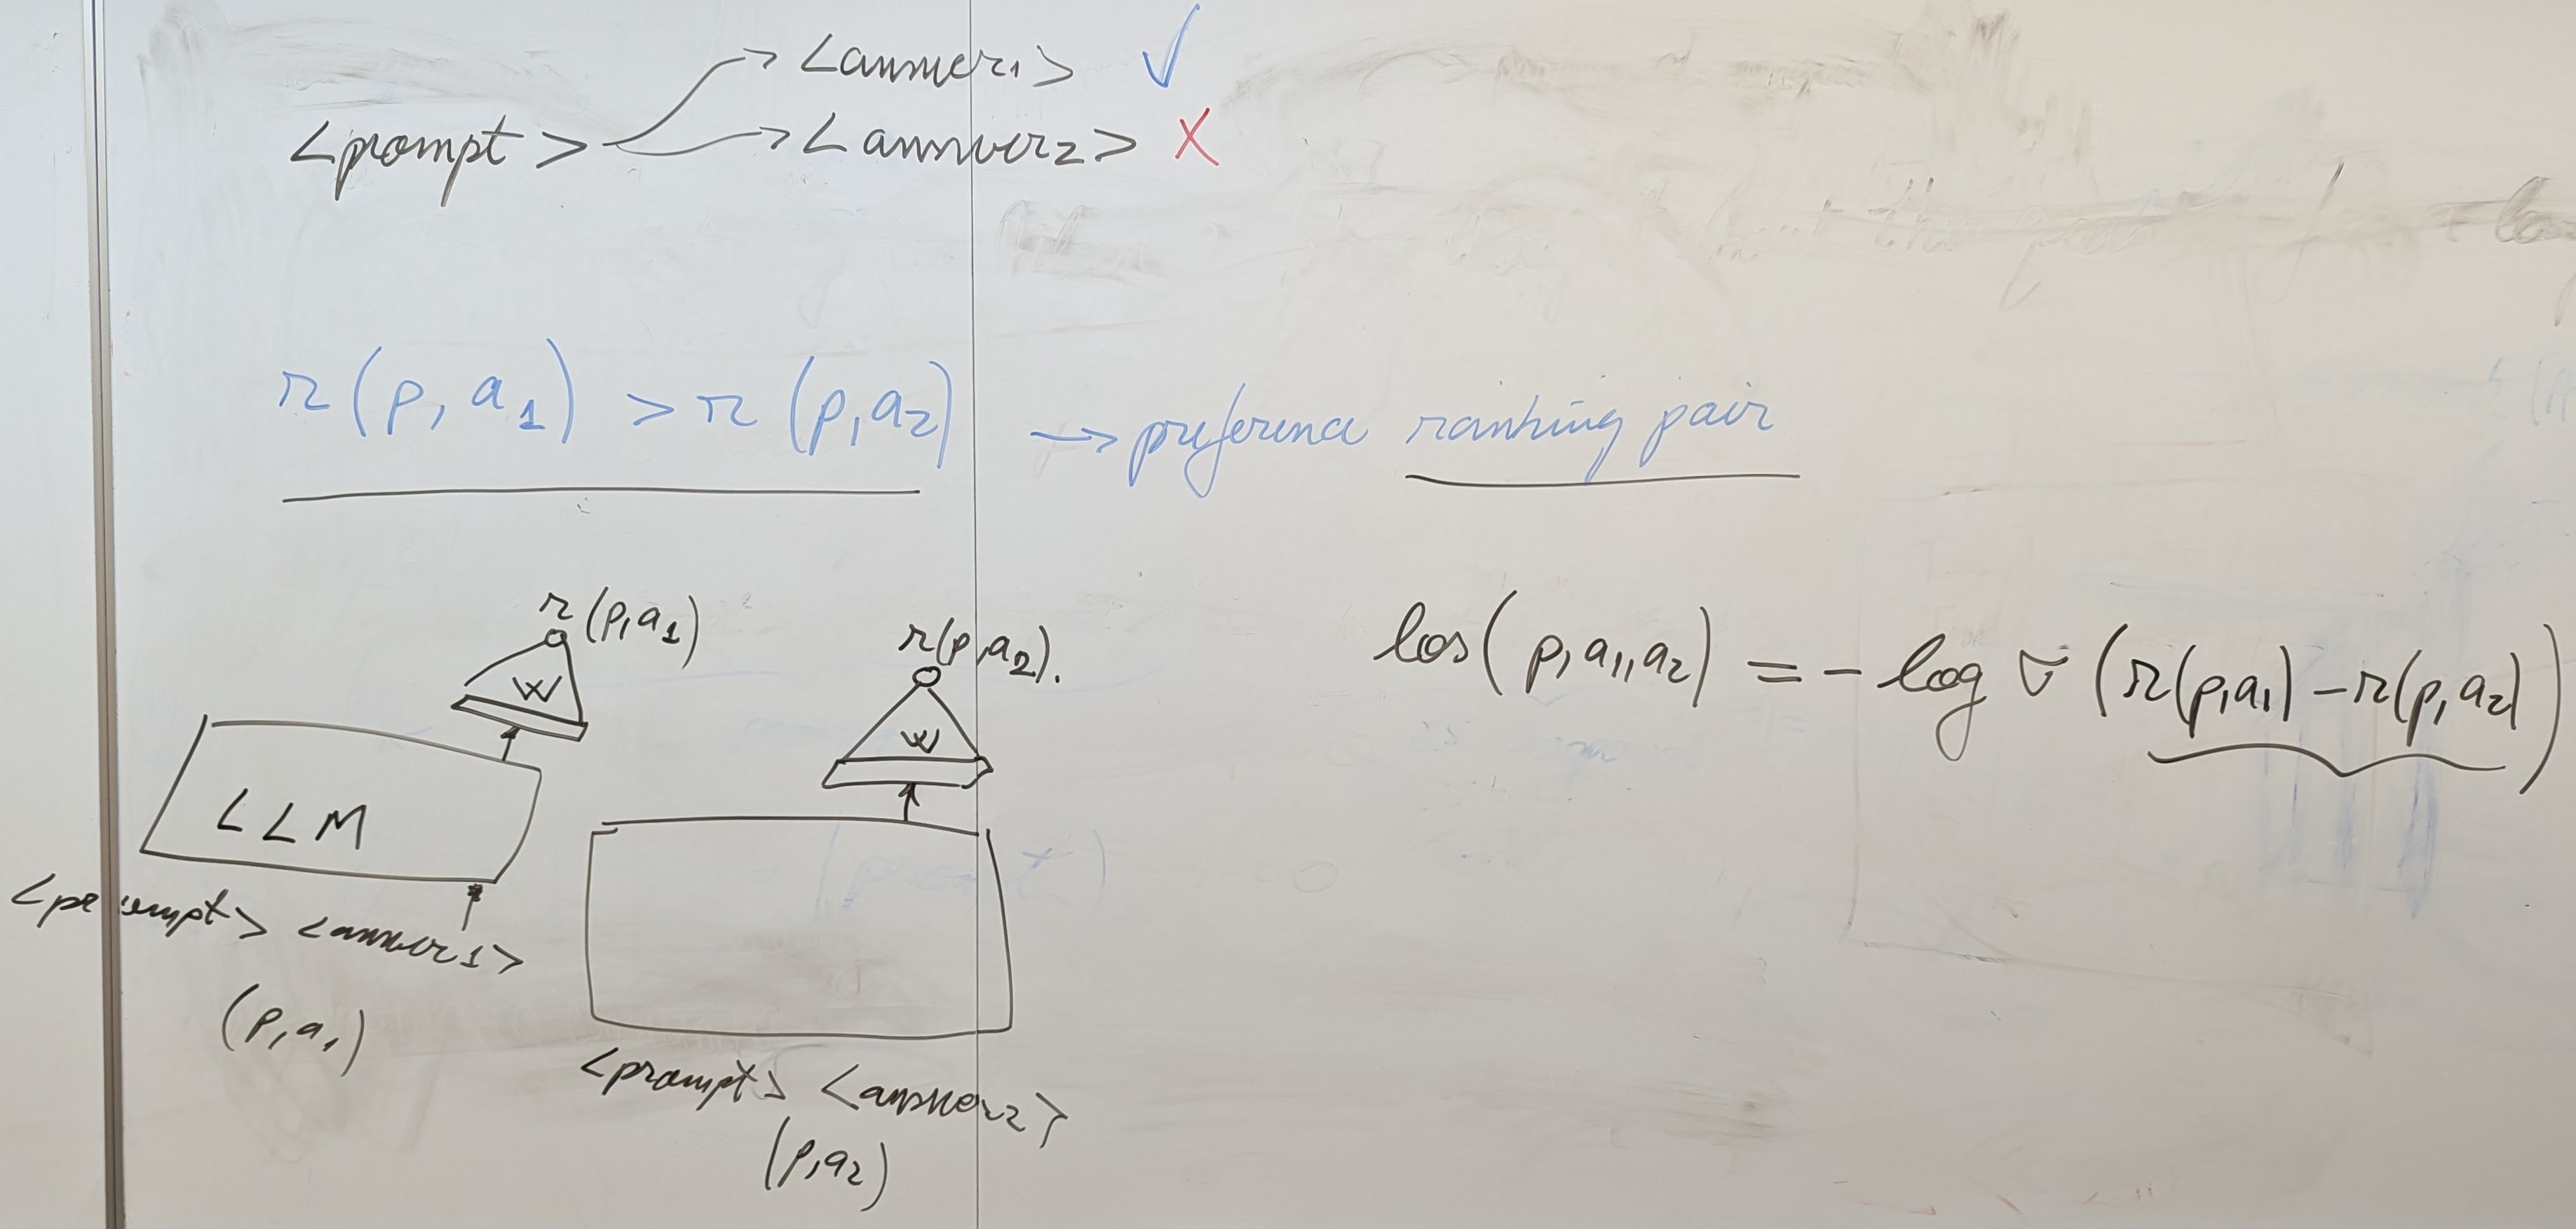 <answer1> ✓
<prompt> → <answer2> X
r(p, a1) > r(p, a2) → preference ranking pair
r(p, a1)
W
LLM
<prompt> <answer1>
(p, a1)
r(p, a2).
W
<prompt> <answer2>
(p, a2)
los(p, a1, a2) = - log σ (r(p, a1) - r(p, a2))